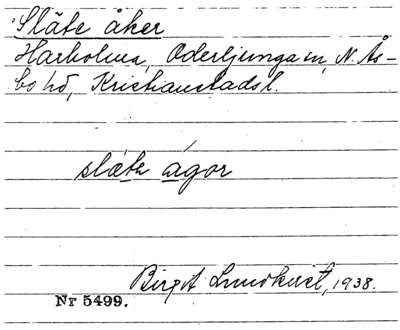 Släte åker
Harholma, Oderljunga sn, N. Ås-
bo hd, Kristianstads l.
slæta ágor
Birgit Lundkvist, 1938.
Nr 5499.